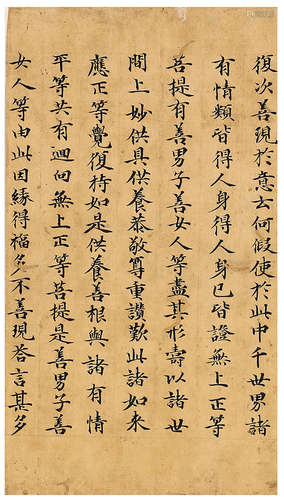 復次善現於意云何假使於此中千世界諸
有情類皆得人身得人身已皆證無上正等
菩提有善男子善女人等盡其形壽以諸世
間上妙供具供養恭敬尊重讚歎此諸如來
應正等覺復持如是供養善根與諸有情
平等共有迴向無上正等菩提是善男子善
女人等由此因緣得福多不善現荅言甚多